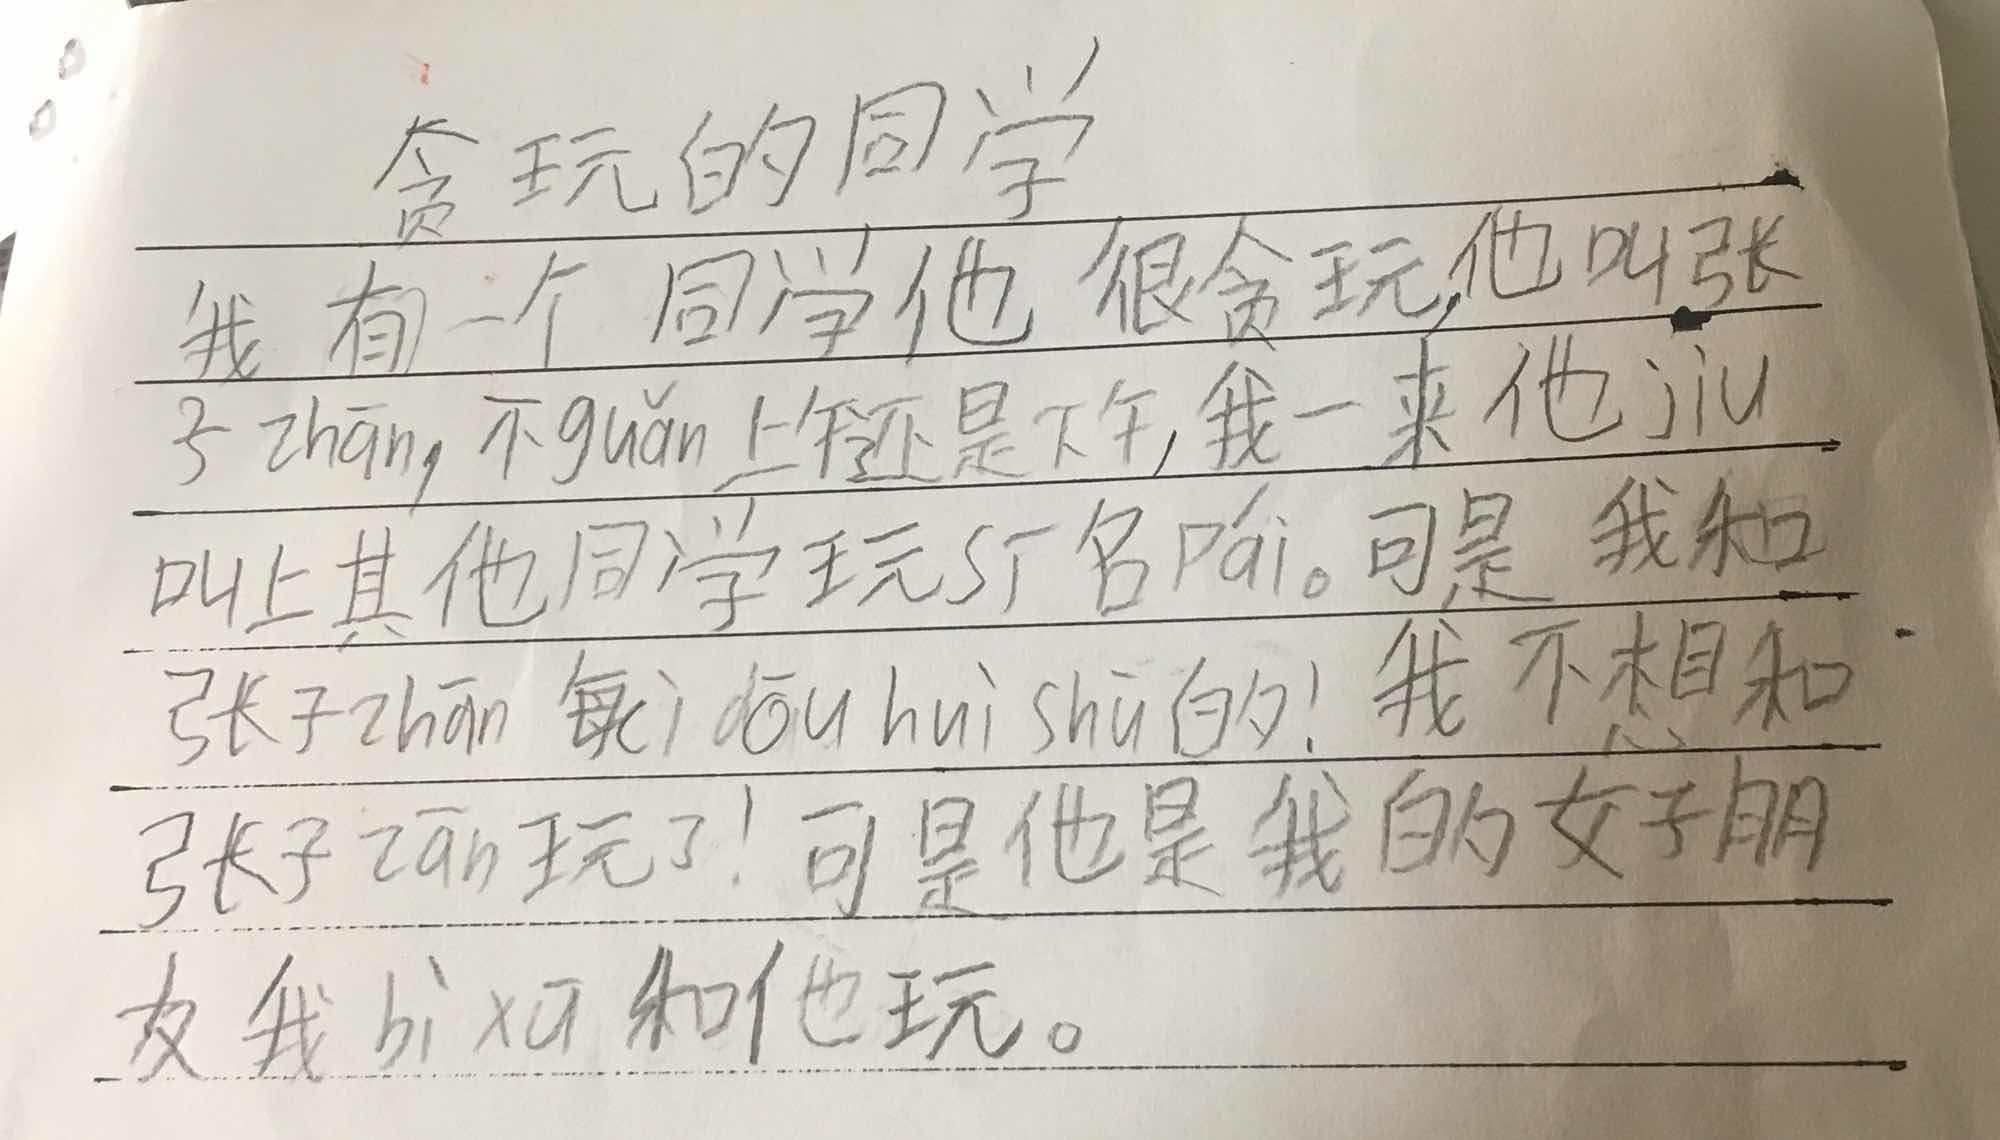 贪玩的同学
我有一个同学他很贪玩,他叫张
子zhān,不guǎn上午还是下午,我一来他jiu
叫上其他同学玩sī名pái。可是我和
张子zhān每ci dōu hui shū的!我不想和
张子zān玩了!可是他是我的女子朋
友我bì xū和他玩。